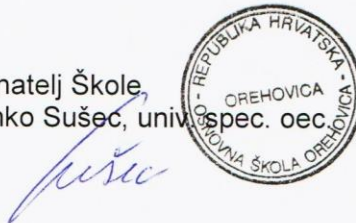 natelj Škole
nko Sušec, univ. spec. oec.
REPUBLIKA HRVATSKA
OREHOVICA
OSNOVNA ŠKOLA OREHOVICA
Sušec